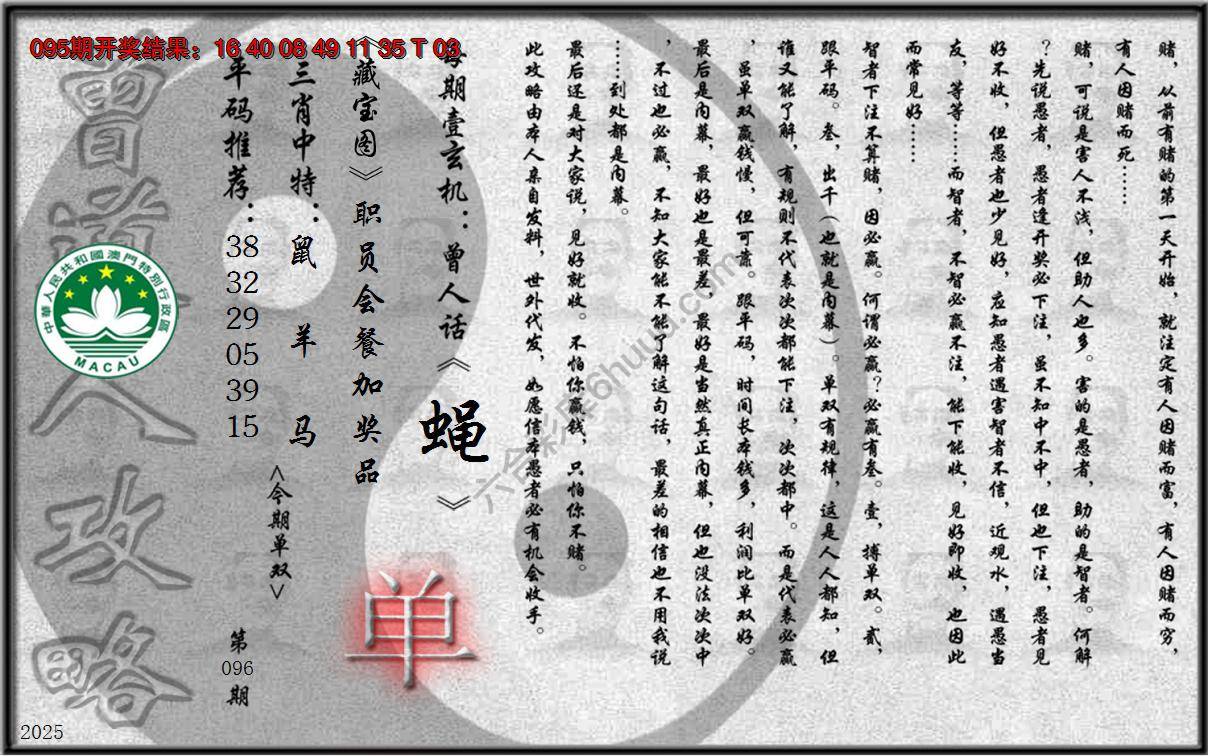 095期开奖结果：16 40 08 49 11 35 T 03
赌，从前有赌的第一天开始，就注定有人因赌而富，有人因赌而穷，
有人因赌而死……
赌，可说是害人不浅，但助人也多。害的是愚者，助的是智者。何解
？先说愚者，愚者逢开奖必下注，虽不知中不中，但也下注，愚者见
好不收，但愚者也少见好，应知愚者遇害智者不信，近观水，遇愚当
友，等等……而智者，不智必赢不注，能下能收，见好即收，也因此
而常见好……
智者下注不算赌，因必赢。何谓必赢？必赢有叁。壹，搏单双。贰，
跟平码。叁，出千（也就是内幕）。单双有规律，这是人人都知，但
谁又能了解，有规则不代表次次都能下注，次次都中。而是代表必赢
，虽单双赢钱慢，但可靠。跟平码，时间长本钱多，利润比单双好。
最后是内幕，最好也是最差，最好是当然真正内幕，但也没法次次中
，不过也必赢，不知大家能不能了解这句话，最差的相信也不用我说
……到处都是内幕。
最后还是对大家说，见好就收。不怕你赢钱，只怕你不赌。
此攻略由本人亲自发料，世外代发，如愿信本愚者必有机会收手。
每期壹玄机：曾人话《蝇》
《藏宝图》职员会餐加奖品
三肖中特：鼠 羊 马
<今期单双>
单
平码推荐：
38
32
29
05
39
15
第
096
期
曾道人攻略
中華人民共和國澳門特別行政區
MACAU
2025